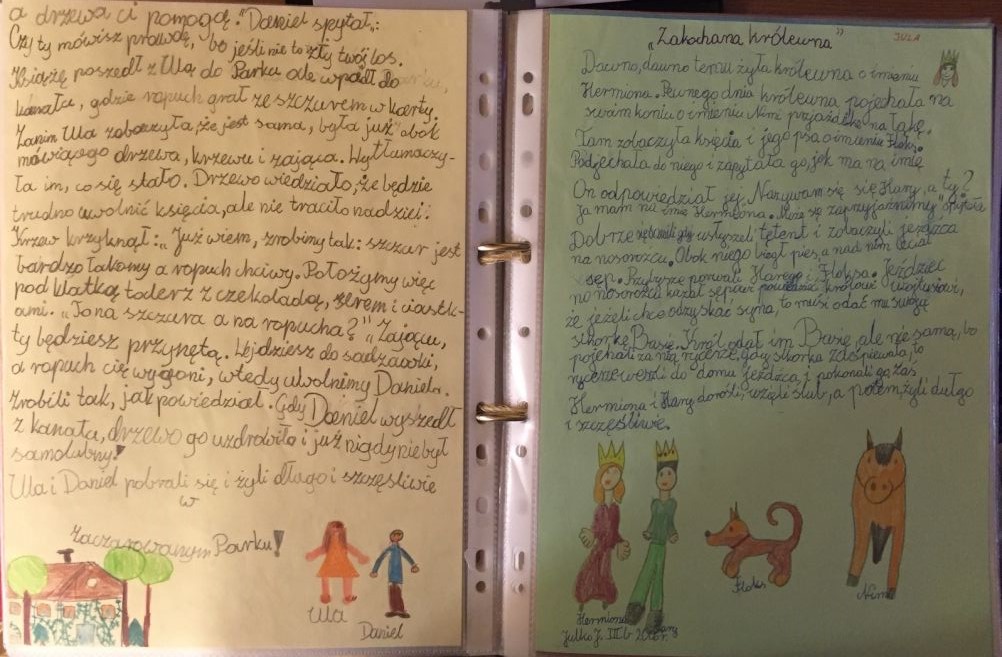 a drzewa ci pomogą." Daniel spytał:
Czy ty mówisz prawdę, bo jeśli nie to zły twój los.
Książę poszedł z Ulą do Parku ale wpadł do
kanału, gdzie ropuch grał ze szczurem w karty.
Zanim Ula zobaczyła, że jest sama, była już obok
mówiącego drzewa, krzewu i zająca. Wytłumaczy-
ła im, co się stało. Drzewo wiedziało, że będzie
trudno uwolnić księcia, ale nie traciło nadziei.
Krzew krzyknął: „Już wiem, zrobimy tak: szczur jest
bardzo łakomy a ropuch chciwy. Położymy więc
pod klatką talerz z czekoladą, serem i ciastk-
ami. „To na szczura a na ropucha?" „Zającu,
ty będziesz przynętą. Wejdziesz do sadzawki,
a ropuch cię wygoni, wtedy uwolnimy Daniela.
Zrobili tak, jak powiedział. Gdy Daniel wyszedł
z kanału, drzewo go uzdrowiło i już nigdy nie był
samolubny!
Ula i Daniel pobrali się i żyli długo i szczęśliwie
w
Zaczarowanym Parku!
Ula
Daniel
„Zakochana królewna"
JULA
Dawno, dawno temu żyła królewna o imieniu
Hermiona. Pewnego dnia królewna pojechała na
swoim koniu o imieniu Nimi przejażdżkę na łąkę.
Tam zobaczyła księcia i jego psa o imieniu Floks.
Podjechała do niego i zapytała go, jak ma na imię
On odpowiedział jej. Nazywam się się Hary, a ty?
Ja mam na imię Hermiona. Może się zaprzyjaźnimy" spytała
Dobrze gdy usłyszeli tętent i zobaczyli jeźdźca
na nosorożcu. Obok niego biegł pies, a nad nim leciał
sęp. Porwali Harego i Floksa. Jeździec
na nosorożcu kazał sępowi powiedzieć królowi
że jeżeli chce odzyskać syna, to musi odać mu swoją
sikorkę Basię. Król odał im Basię, ale nie sama, bo
pojechali za nią rycerze, gdy sikorka zaśpiewała, to
rycerze weszli do domu jeźdźca i pokonali go, zaś
Hermiona i Hary dorośli, wzięli ślub, a potem żyli długo
i szczęśliwie.
Hermiona
Hary
Floks
Nimi
Julka J. III b